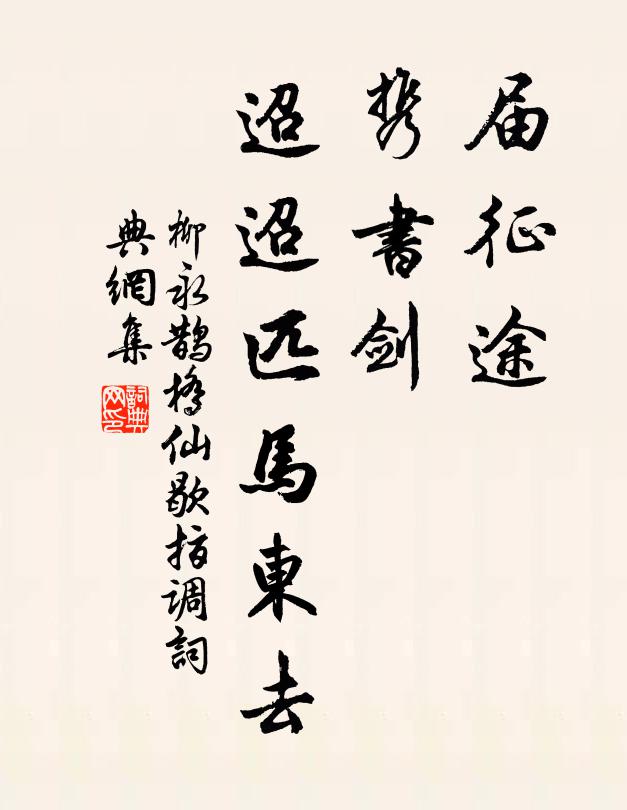 届征途
携書剑
迢迢匹馬東去
柳永鵲橋仙歇指調詞
典網集
詞典网印